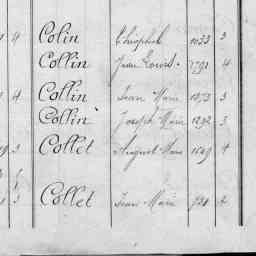 4 Colin Théophile 1033 3
Collin Jean Louis 1791 4
4 Collin Jean Marie 1073 3
Collin Joseph Marie 1292 3
3 Collet August Marie 1049 4
3 Collet Jean Marie 731 2